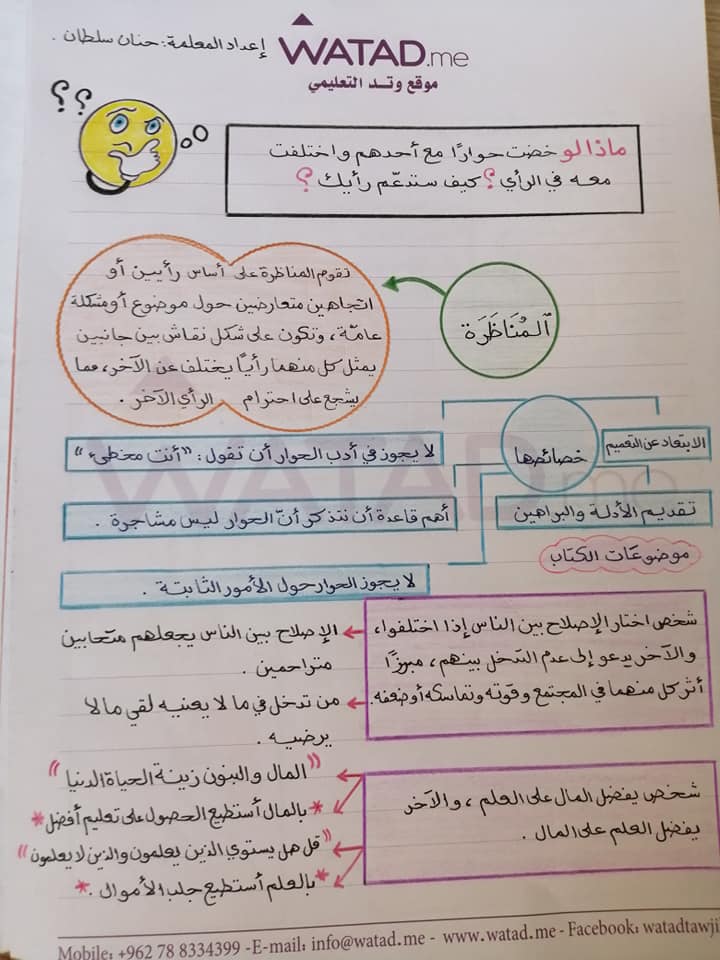 إعداد المعلمة: حنان سلطان .
WATAD.me
موقع وتد التعليمي
؟ ؟
ماذا لو خضت حوارًا مع أحدهم واختلفت
معه في الرأي ؟ كيف ستدعّم رأيك ؟
المُنَاظَرَة
تقوم المناظرة على أساس رأيين أو
اتجاهين متعارضين حول موضوع أو مشكلة
عامّة ، وتكون على شكل نقاش بين جانبين
يمثل كل منهما رأيًا يختلف عن الآخر، مما
يشجع على احترام الرأي الآخر .
خصائصها
الابتعاد عن التعميم
لا يجوز في أدب الحوار أن تقول : "أنت مخطىء"
تقديم الأدلة والبراهين
أهم قاعدة أن نتذكر أنّ الحوار ليس مشاجرة .
لا يجوز الحوار حول الأمور الثابتة .
موضوعات الكتاب
شخص اختار الإصلاح بين الناس إذا اختلفوا ،
والآخر يدعو إلى عدم التدخل بينهم ، مبرزًا
أثر كل منهما في المجتمع وقوته وتماسكه أو ضعفه.
الإصلاح بين الناس يجعلهم متحابين
متراحمين .
من تدخل في ما لا يعنيه لقي ما لا
يرضيه .
شخص يفضل المال على العلم ، والآخر
يفضل العلم على المال .
"المال والبنون زينة الحياة الدنيا"
* بالمال أستطيع الحصول على تعليم أفضل *
"قل هل يستوي الذين يعلمون والذين لا يعلمون"
* بالعلم أستطيع جلب الأموال . *
WATAD.me
Mobile: +962 78 8334399 -E-mail: info@watad.me - www.watad.me - Facebook: watadtawji